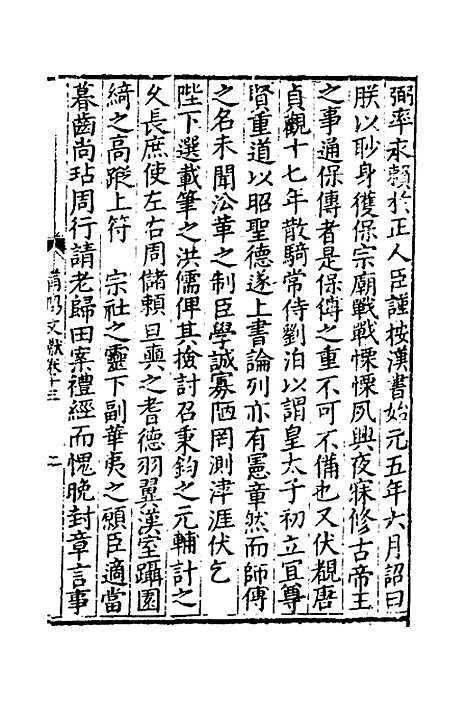 弼率求賴於正人臣謹按漢書始元五年六月詔曰
朕以眇身獲保宗廟戰戰慄慄夙興夜寐修古帝王
之事通保傅者是保傅之重不可不備也又伏覩唐
貞觀十七年散騎常侍劉洎以謂皇太子初立宜尊
賢重道以昭聖德遂上書論列亦有憲章然而師傅
之名未聞沿革之制臣學誠寡陋罔測津涯伏乞
陛下選載筆之洪儒俾其檢討召秉鈞之元輔計之
乆長庶使左右周儲賴旦奭之耆德羽翼漢室躡園
綺之高蹤上符 宗社之靈下副華夷之願臣適當
暮齒尚玷周行請老歸田案禮經而愧晚封章言事
文獻卷十三
二